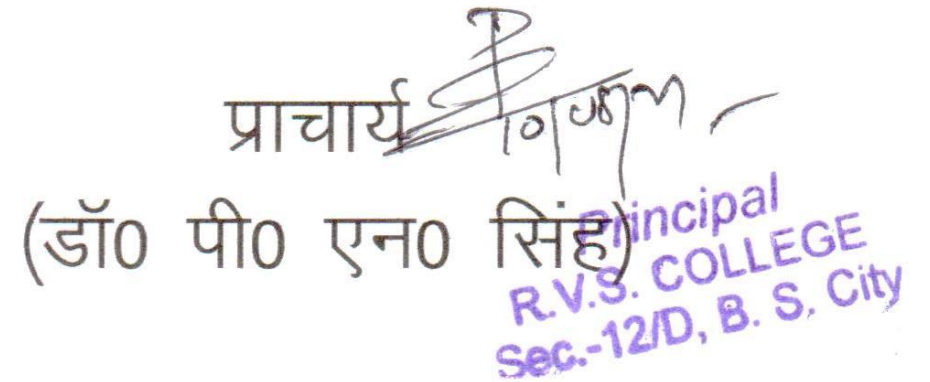 प्राचार्य
(डॉ0 पी0 एन0 सिंह)
Principal
R.V.S. COLLEGE
Sec.-12/D, B. S. City